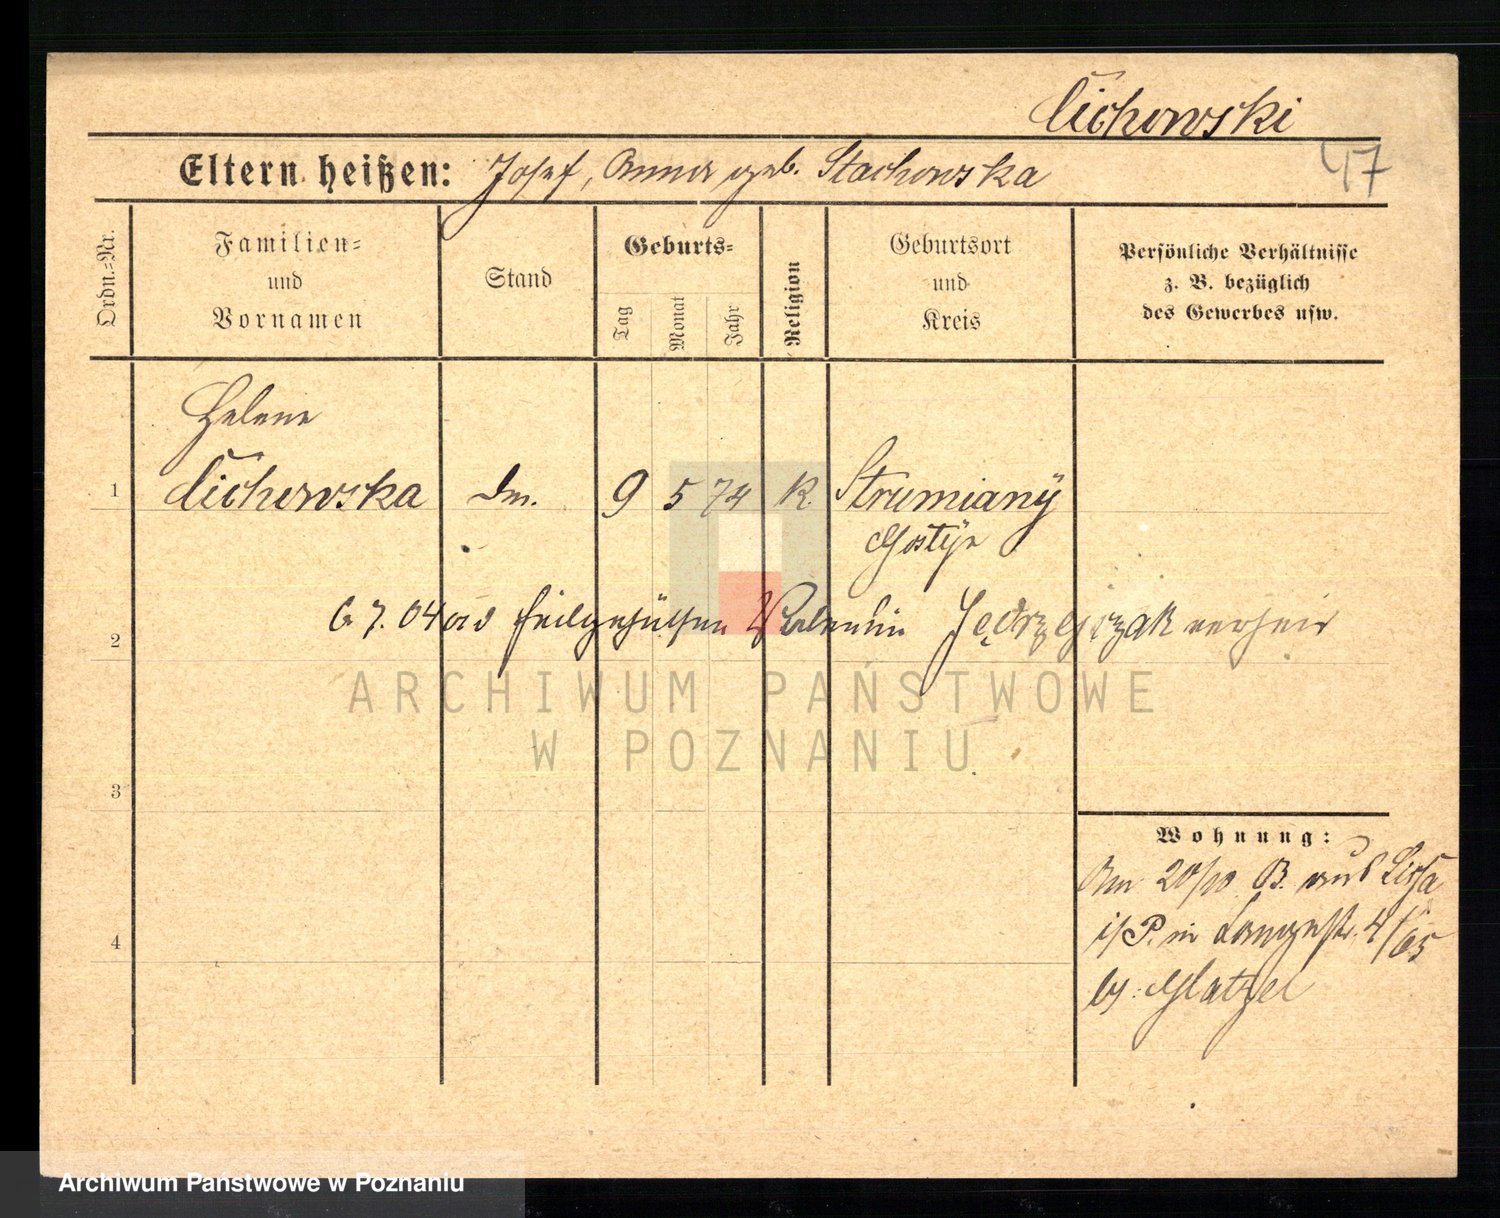 Cichowski
47
Eltern heißen: Josef, Anna geb. Stachowska
Ordn.=Nr.
Familien=
und
Vornamen
Stand
Geburts=
Tag
Monat
Jahr
Religion
Geburtsort
und
Kreis
Persönliche Verhältnisse
z. B. bezüglich
des Gewerbes usw.
Helene
1 Cichowska 9 5 74 K. Strumiany
Gostyn
2 6 7. 04 als Valentin Jędrzejczak
3
4
Wohnung:
Am 20/10 B. aus Lissa
i/P. in Langestr. 4/
bei Glatzel
ARCHIWUM PAŃSTWOWE
W POZNANIU
Archiwum Państwowe w Poznaniu